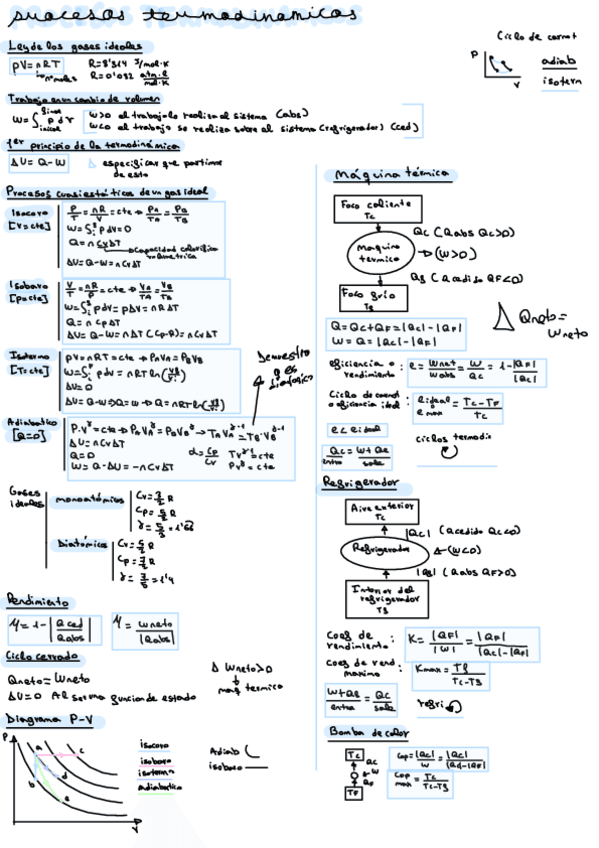 procesos termodinámicos
Ley de los gases ideales
pV = nRT
nº moles
R = 8'314 J/mol·K
R = 0'082 atm·l/mol·K
Trabajo en un cambio de volumen
W = ∫ p dV
inicial
W>0 el trabajo lo realiza el sistema (abs)
W<0 el trabajo se realiza sobre el sistema (refrigerador) (ced)
1er principio de la termodinámica
ΔU = Q - W
especificar que partimos de esto
Procesos cuasiestáticos de un gas ideal
Isocoro
[V=cte]
P/T = nR/V = cte → PA/TA = PB/TB
W = ∫ p dV = 0
Q = n Cv ΔT
capacidad calorífica
ΔU = Q - W = n Cv ΔT
Isobaro
[p=cte]
V/T = nR/P = cte → VA/TA = VB/TB
W = ∫ p dV = p ΔV = nR ΔT
Q = n Cp ΔT
ΔU = Q - W = n ΔT (Cp-R) = n Cv ΔT
Isotermo
[T=cte]
pV = nRT = cte → PAVA = PBVB
ΔU = 0
ΔU = Q - W → Q = W
Adiabático
[Q=0]
ΔU = n Cv ΔT
Q = 0
W = Q - ΔU = -n Cv ΔT
Cp/Cv
Gases ideales
monoatómicos
Cv = 3/2 R
Cp = 5/2 R
γ = 5/3 = 1'66
Diatómicos
Cv = 5/2 R
Cp = 7/2 R
γ = 7/5 = 1'4
Rendimiento
η = 1 - |Qced/Qabs|
η = Wneto/|Qabs|
Ciclo cerrado
Qneto = Wneto
ΔU = 0 Al ser una función de estado
Δ Wneto>0
maq termico
Diagrama P-V
P
a
b
c
d
e
V
isocoro
isobaro
isotermo
adiabático
Adiab
isobaro
Ciclo de carnot
P
V
adiab
isoterm
Máquina térmica
Foco caliente
Tc
Qc (Qabs Qc>0)
Maquina termica
(W>0)
Qf (Qcedido QF<0)
Foco frío
Tf
Q = Qc + QF = |Qc| - |QF|
W = Q = |Qc| - |QF|
Qneto = Wneto
eficiencia o rendimiento: e = Wneto/Wabs = W/Qc = 1 - |QF|/|Qc|
Ciclo de carnot o eficiencia ideal: e ideal = e max = Tc-TF/Tc
e < e ideal
ciclos termodin
Qc = W + QF
entra
sale
Refrigerador
Aire exterior
Tc
|Qc| (Qcedido Qc<0)
Refrigerador
(W<0)
|Qf| (Qabs QF>0)
Interior del refrigerador
Tf
Coef de rendimiento: K = |QF|/|W| = |QF|/|Qc|-|QF|
Coef de rend maximo: Kmax = Tf/Tc-Tf
entra
sale
refri
Bomba de calor
Tc
Qc
W
QF
TF
Cop = |Qc|/W = |Qc|/|Qc|-|QF|
Cop max = Tc/Tc-Tf